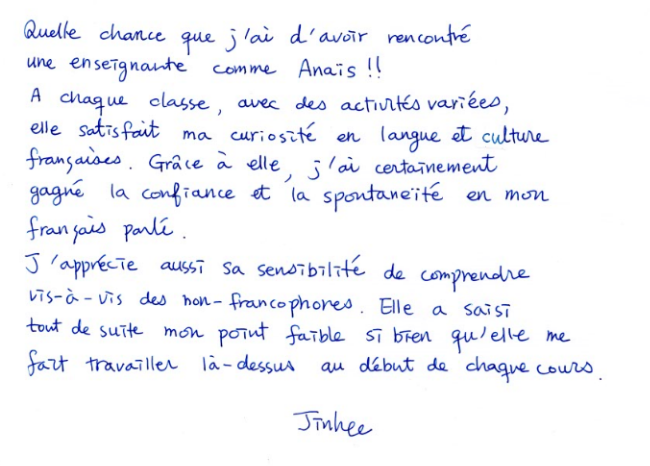 Quelle chance que j'ai d'avoir rencontré
une enseignante comme Anaïs !!
A chaque classe, avec des activités variées,
elle satisfait ma curiosité en langue et culture
françaises. Grâce à elle, j'ai certainement
gagné la confiance et la spontaneïté en mon
français parlé.
J'apprécie aussi sa sensibilité de comprendre
vis-à-vis des non-francophones. Elle a saisi
tout de suite mon point faible si bien qu'elle me
fait travailler là-dessus au début de chaque cours.
Jinhee